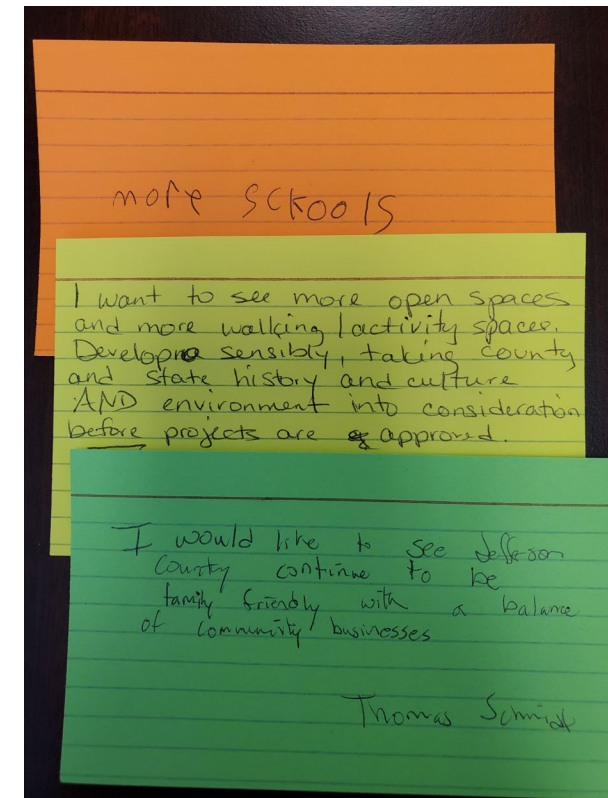 more sckools
I want to see more open spaces
and more walking/activity spaces.
Develop sensibly, taking county
and state history and culture
AND environment into consideration
before projects are approved.
I would like to see Jefferson
County continue to be
family friendly with a balance
of community businesses
Thomas Schmidt